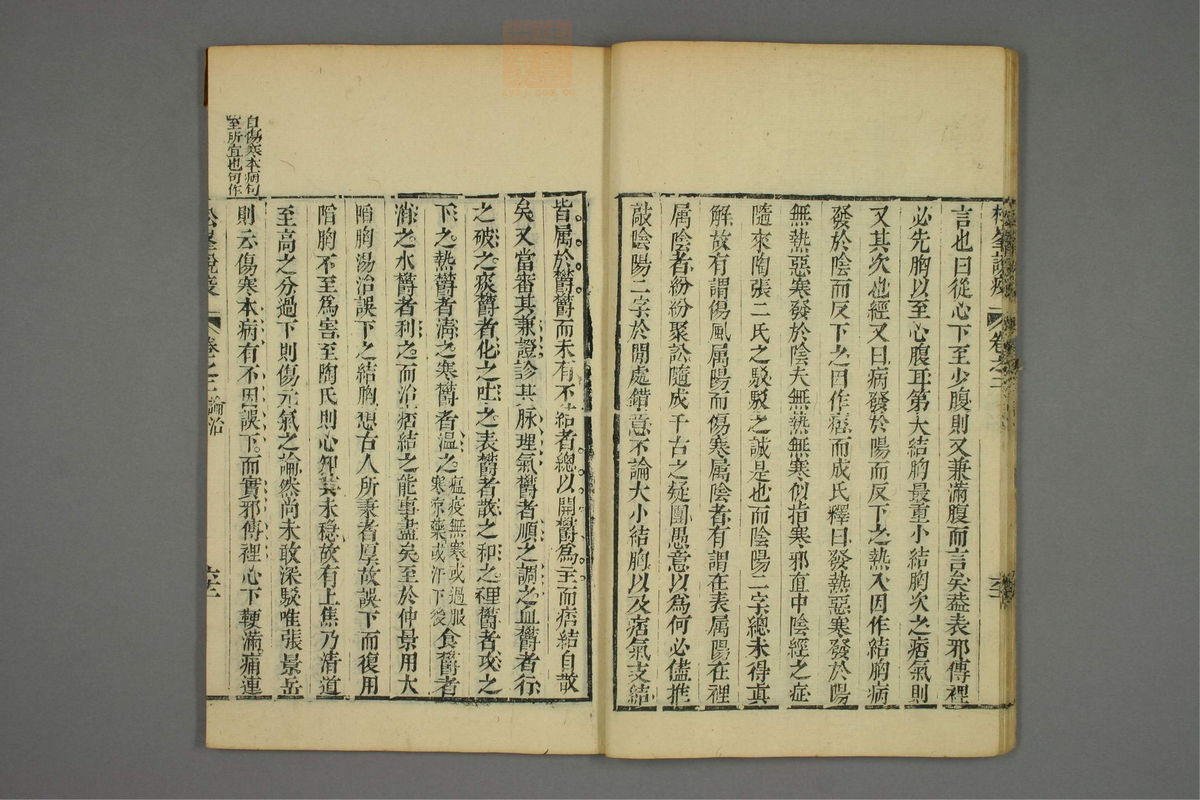 松峯說疫 卷之二
言也曰從心下至少腹則又兼滿腹而言矣葢表邪傳裡
必先胸以至心腹耳第大結胸最重小結胸次之痞氣則
又其次也經又曰病發於陽而反下之熱入因作結胸病
發於陰而反下之因作痞而成氏釋曰發熱惡寒發於陽
無熱惡寒發於陰夫無熱無寒似指寒邪直中陰經之症
隨來陶張二氏之駁駁之誠是也而陰陽二字總未得真
解故有謂傷風属陽而傷寒属陰者有謂在表属陽在裡
属陰者紛紛聚訟隨成千古之疑團愚意以為何必儘推
敲陰陽二字於閒處錯意不論大小結胸以及痞氣支結
皆属於欝欝而未有不結者總以開欝為主而痞結自散
矣又當審其兼證診其脉理氣欝者順之調之血欝者行
之破之痰欝者化之吐之表欝者散之和之裡欝者攻之
下之熱欝者清之寒欝者温之瘟疫無寒或過服寒凉藥或汗下後食欝者
消之水欝者利之而治痞結之能事盡矣至於仲景用大
陷胸湯治誤下之結胸想古人所秉者厚故誤下而復用
陷胸不至為害至陶氏則心知其未穏故有上焦乃清道
至高之分過下則傷元氣之論然尚未敢深駁唯張景岳
則云傷寒本病有不因誤下而實邪傳裡心下鞕滿痛連
自傷寒本病句
至所宜也句作
松峯說疫 卷之二 論治